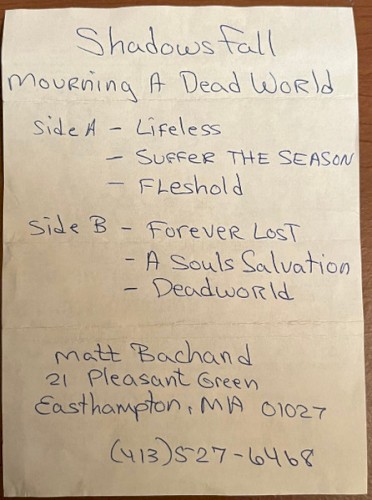 Shadows Fall
Mourning A Dead World
Side A - Lifeless
- Suffer The Season
- Fleshold
Side B - Forever Lost
- A Souls Salvation
- Deadworld
Matt Bachand
21 Pleasant Green
Easthampton, MA 01027
(413)527-6468